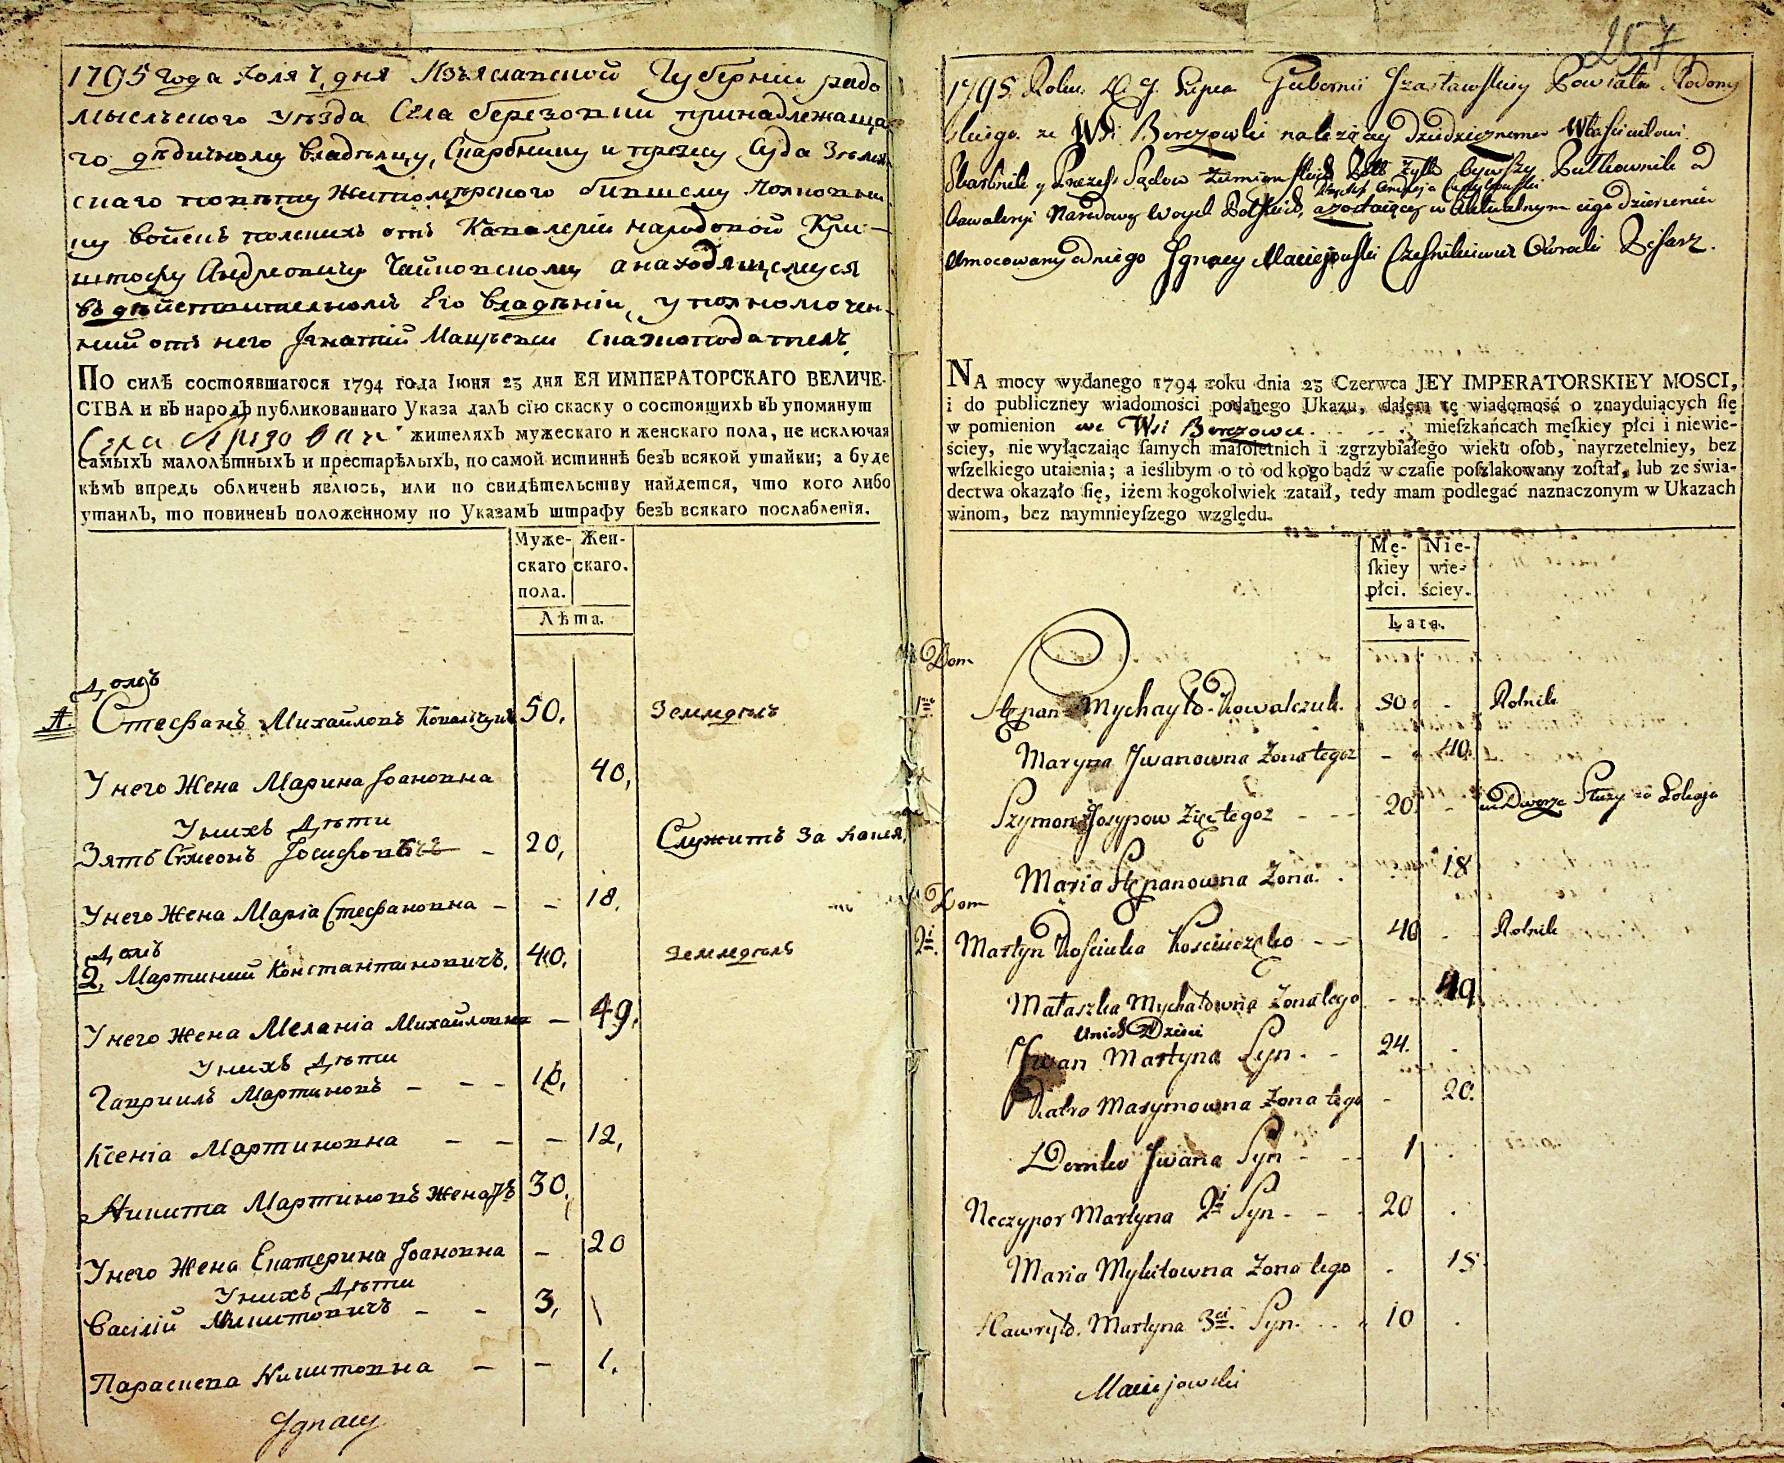 1795 года Юля 9, дня Изъяславской Губерніи радо
мысльского уѣзда Села березовки принадлежаща
го дѣдичному владѣлцу, Скарбнику и презесу Суда Земля
скаго повѣту Житомѣрского бывшему Полковни
ку войскъ полскихъ отъ Кавалеріи народовой Кри-
штофу Андреовичу Чайковскому а находящемуся
въ дѣйствительномъ Его владѣніи, уполномочен-
ний отъ него Игнатій Мацѣевски Сказкоподатель
По силѣ состоявшагося 1794 года Іюня 23 дня ЕЯ ИМПЕРАТОРСКАГО ВЕЛИЧЕ-
СТВА и въ народъ публикованнаго Указа далъ сїю скаску о состоящихъ въ упомянут
Села Березовки жителяхъ мужескаго и женскаго пола, не исключая
самыхъ малолѣтныхъ и престарѣлыхъ, по самой истиннѣ безъ всякой утайки; а буде
кѣмъ впредь обличенъ явлюсь, или по свидѣтельству найдется, что кого либо
утаилъ, то повиненъ положенному по Указамъ штрафу безъ всякаго послабленїя.
Муже- Жен-
скаго скаго.
пола.
Лѣта.
Домъ
1. Стефанъ Михайловъ Ковальчукъ 50, Земледѣлъ
У него Жена Марина Іоановна 40,
У нихъ Дѣти
Зять Сѵмеонъ Іосифовъ - 20, Служитъ За лакея,
У него Жена Марія Стефановна - - 18,
Домъ
2, Мартиний Константиновичъ. 40, Земледѣлъ
У него Жена Меланіа Михайловна - 49,
У нихъ Дѣти
Гавриилъ Мартиновъ - - - 10,
Ксеніа Мартиновна - - - 12,
Никита Мартиновъ женатъ 30,
У него Жена Екатерина Іоановна - 20
У нихъ Дѣти
Василій Никитовичъ - - 3,
Параскева Никитовна - - 1,
Ignacy
257
1795 Roku D. 9 Lipca Gubernii Jzasławskiey Powiatu Radomy
skiego ze Wsi Berezowki należącey Dziedzicznemu Właścicielowi
Skarbnik y Prezes Sądow Ziemianskich Pttu Żyto bywszy Pułkownik
Krzysztof Andrzeja Czaykowski
Kawaleryi Narodowey Woysk Polskich, a zostaiącey w Aktualnym iego dzierżeniu
Umocowany od niego Jgnacy Maciejowski Cześnikiewicz Owrucki Pisarz.
NA mocy wydanego 1794 roku dnia 23 Czerwca JEY IMPERATORSKIEY MOSCI,
i do publiczney wiadomości podanego Ukazu, dałem tę wiadomość o znayduiących się
w pomienion we Wsi Berezowce mieszkańcach męskiey płci i niewie-
ściey, nie wyłączaiąc samych małoletnich i zgrzybiałego wieku osob, nayrzetelniey, bez
wszelkiego utaienia; a ieślibym o to od kogo bądź w czasie poszlakowany został, lub ze świa-
dectwa okazało się, iżem kogokolwiek zataił, tedy mam podlegać naznaczonym w Ukazach
winom, bez naymnieyszego względu.
Mę- Nie-
skiey wie-
płci. ściey.
Lata.
Dom
1szy Stepan Mychayło Kowalczuk. 50. - Rolnik
Maryna Jwanowna Żona tegoz - 40.
Szymon Josypow Zięć tegoz - - - 20. - we Dworze Służy za Lokaja
Maria Stepanowna Żona. 18
Dom
2i. Martyn Kościuka Kościuczenko - - 40 - Rolnik
Małaszka Mychałowna Żona tego - 49
Unich Dzieci
Jwan Martyna Syn. - 24.
Katra Maxymowna Żona tego - 20.
Demko Jwana Syn - - - 1
Neczypor Martyna 2i Syn - - - 20
Maria Mykitowna Żona tego - 18.
Hawryło. Martyna 3ci. Syn. - - 10
Maciejowski